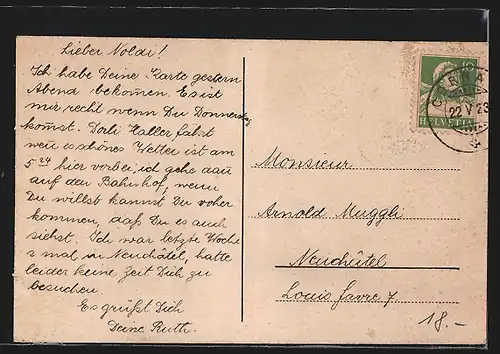 Lieber Noldi!
Ich habe Deine Karte gestern
Abend bekommen. Es ist
mir recht wenn Du Donnerstag
kommst. Dorli Haller fährt
wen es schönes Wetter ist am
5 24 hier vorbei, ich gehe dan
auf den Bahnhof, wenn
Du willst kannst Du vorher
kommen, daß Du es auch
siehst. Ich war letzte Woche
2 mal in Neuchâtel, hatte
leider keine Zeit Dich zu
besuchen.
Es grüßt Dich
Deine Ruth.
10
HELVETIA
22.V.23
Monsieur
Arnold Muggli
Neuchâtel
Louis favre 7
18.-